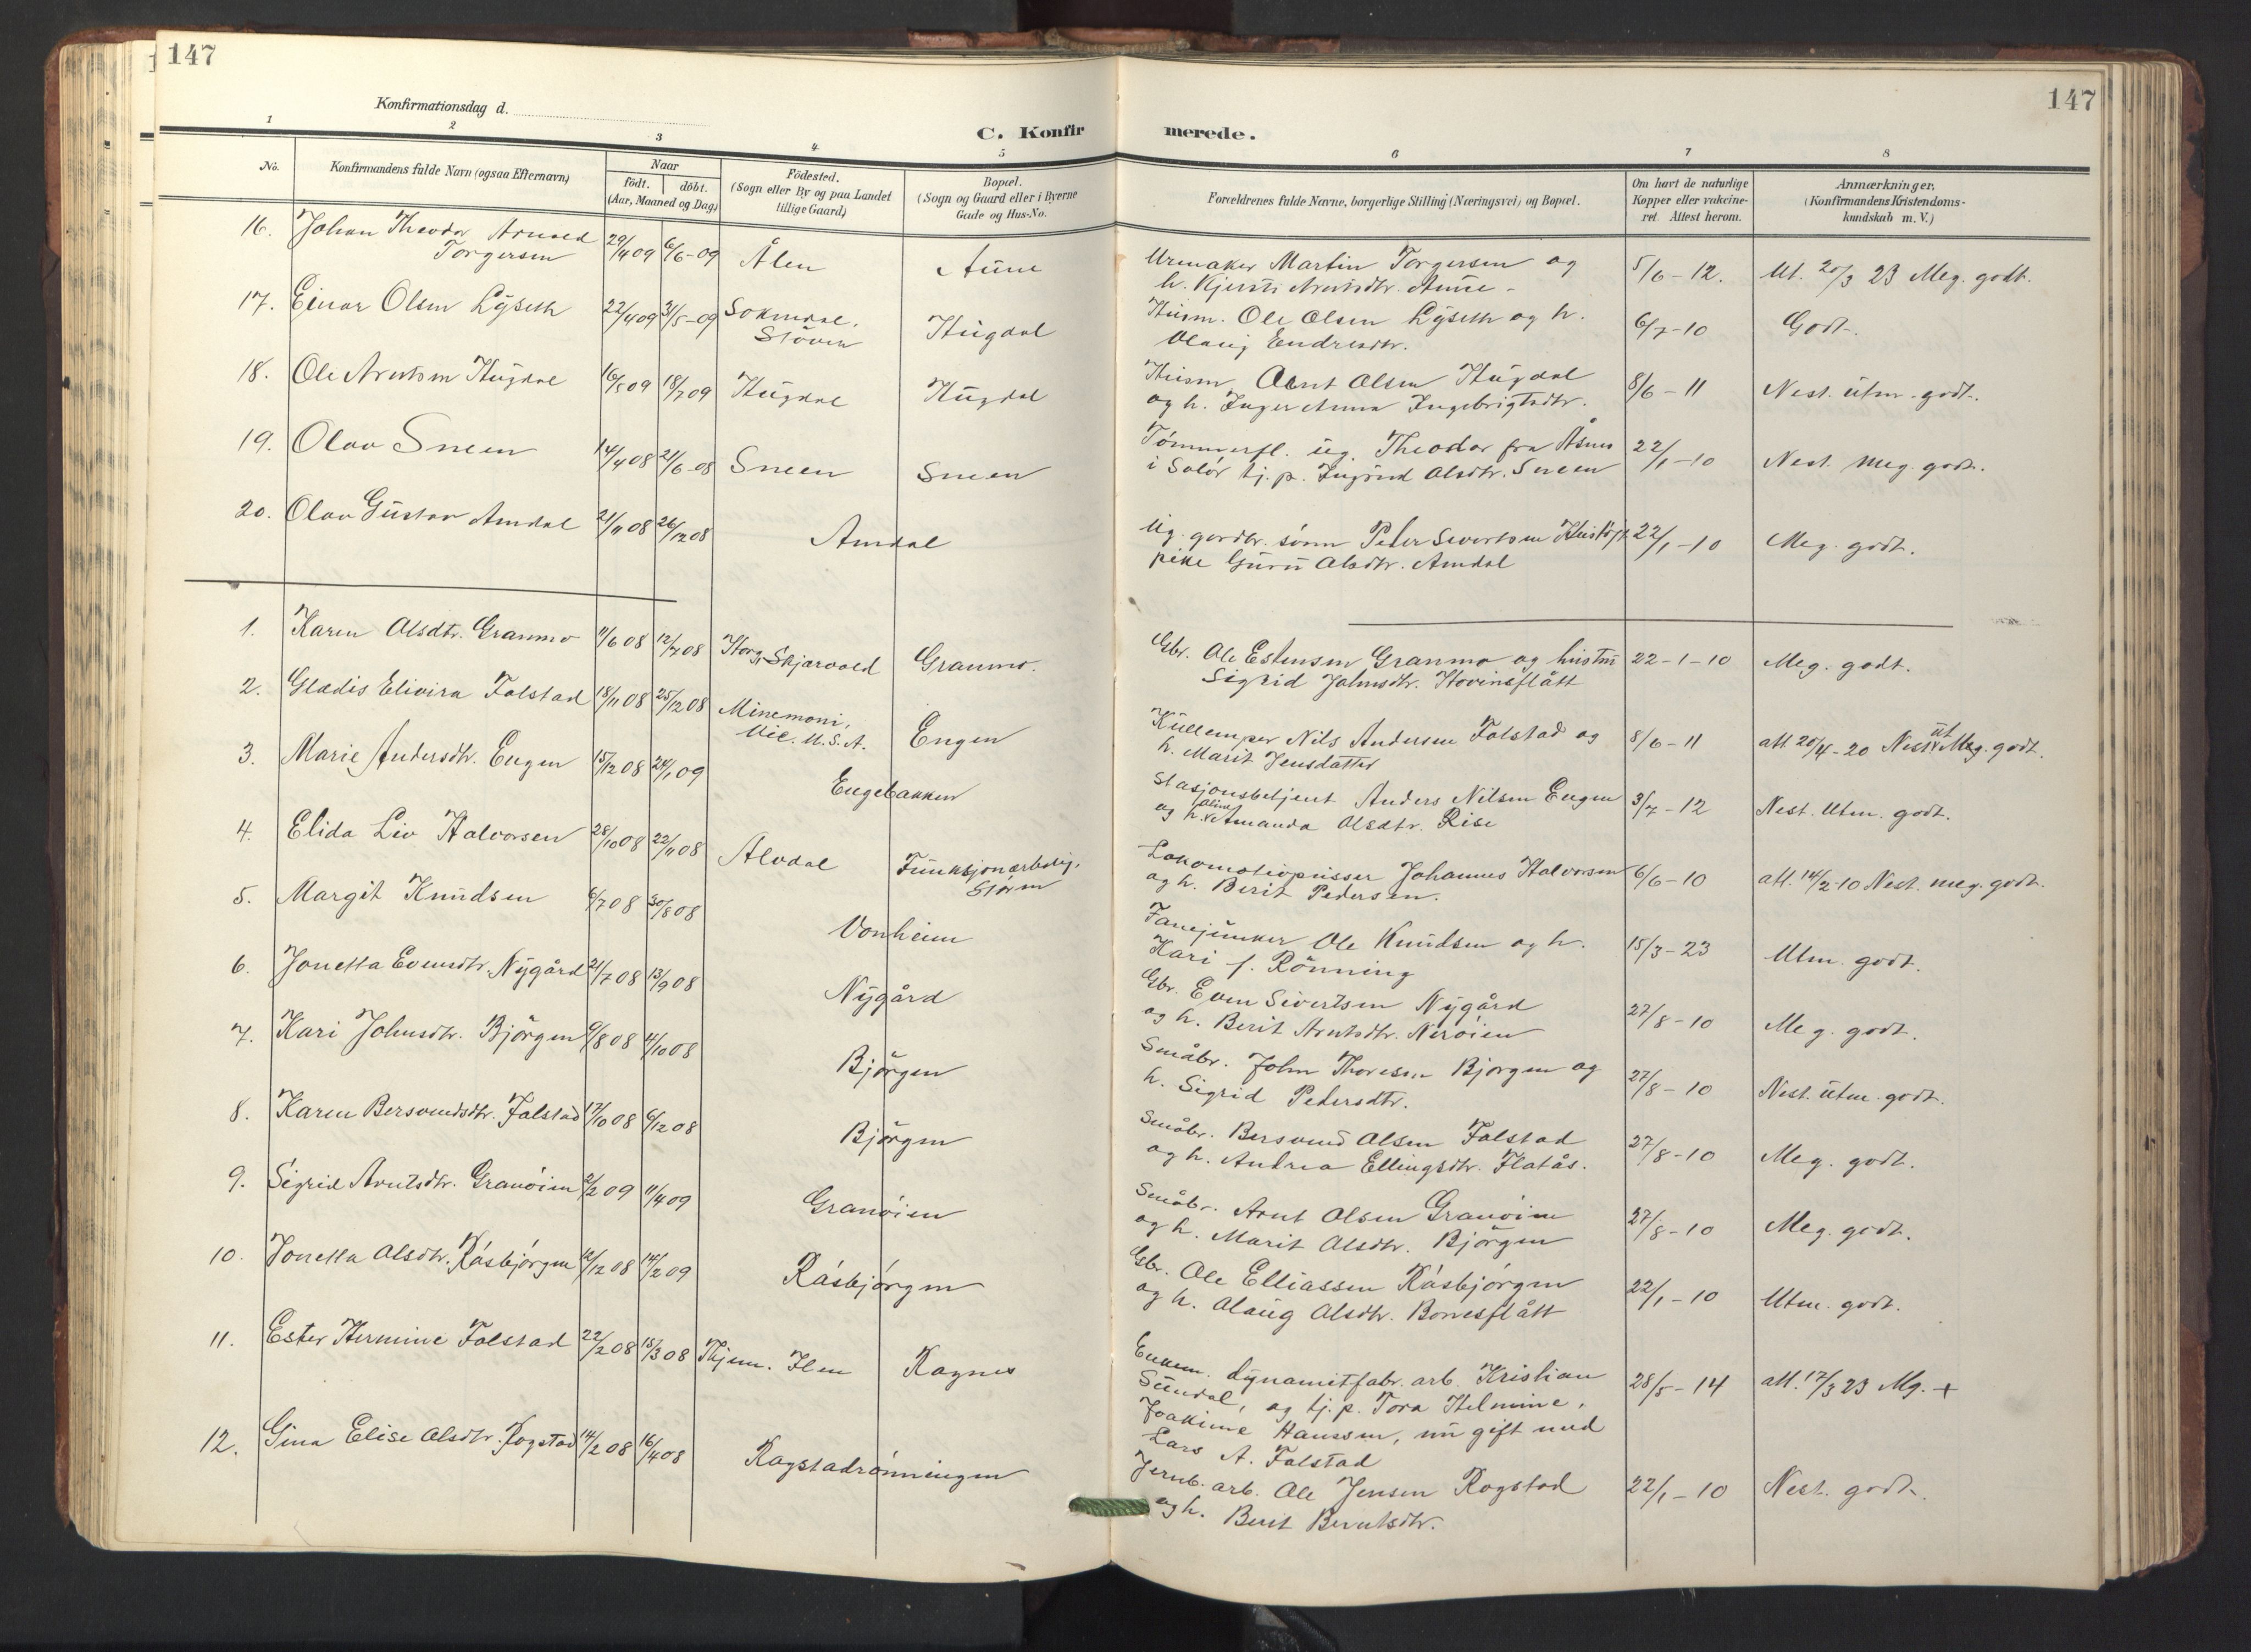 147
147
Konfirmationsdag d.
C. Konfirmerede.
1 2 3 4 5 6 7 8
No.
Konfirmandens fulde Navn (ogsaa Efternavn)
Naar
født. döbt.
(Aar, Maaned og Dag)
Födested.
(Sogn eller By og paa Landet
tillige Gaard)
Bopæl.
(Sogn og Gaard eller i Byerne
Gade og Hus-No.
Forældrenes fulde Navne, borgerlige Stilling (Næringsvei) og Bopæl.
Om havt de naturlige
Kopper eller vakcine-
ret. Attest herom.
Anmærkninger.
(Konfirmandens Kristendoms-
kundskab m. V.)
16. Johan Theodor Arnold 29/4 09 6/6-09 Ålen Aune Urmaker Martin Torgersen og 5/6-12. Ut. 20/3 23 Meg. godt.
Torgersen h. Kjersti Arntsdtr. Aune -
17. Einar Olsen Lÿseth 22/4 09 31/5-09 Soknedal, Hügdal Husm. Ole Olsen Lÿseth og h. 6/7-10 Godt.
Stören Olaug Endresdtr.
18. Ole Arntsen Hügdal 16/5 09 18/7 09 Hügdal Hügdal Husm. Arnt Olsen Hügdal 8/6-11 Nest. ütm. godt.
og h. Inger Anna Ingebrigtsdtr.
19. Olav Sneen 14/4 08 21/6-08 Sneen Sneen Tömmerfl. üg. Theodor fra Åsnes 22/1-10 Nest. meg. godt.
i Solör tj. p. Ingrid Olsdtr. Sneen
20. Olav Güstav Amdal 21/11 08 26/12 08 Amdal Ug. gardbr. sönn Peder Sivertsen 22/1-10 Meg. godt.
pike Gürü Olsdtr. Amdal
1. Karen Olsdtr. Granmo 11/6 08 12/7 08 Horg, Skjærvold Granmo. Gbr. Ole Estensen Granmo og hustrü 22-1-10 Meg. godt.
Sigrid Johnsdtr. Hovinsflått
2. Gladis Elivira Folstad 18/11 08 25/12 08 Minemoni, Engen Küllemper Nils Andersen Folstad og 8/6-11 att. 20/4-20 Nest. üt Meg. godt.
U.S.A. h. Marit Jensdatter
3. Marie Andersdtr. Engen 15/12 08 24/1 09 Engebakken Stasjonsbetjent Anders Nilsen Engen 3/7-12 Nest. Utm. godt.
og h. Oline Amanda Olsdtr. Rise
4. Elida Liv Halvorsen 28/10 08 22/11 08 Alvdal Fünksjonærbolig, Lokomotivpüsser Johannes Halvorsen 6/6-10 att. 14/2-10 Nest. meg. godt.
Stören og h. Berit Pedersen.
5. Margit Knüdsen 6/7 08 30/8 08 Vonheim Fanejünker Ole Knüdsen og h. 15/3-23 Utm. godt.
Kari f. Rönning
6. Jonetta Evensdtr. Nÿgård 21/7 08 13/9 08 Nÿgård Gbr. Even Sivertsen Nÿgård 27/8-10 Meg. godt.
og h. Berit Arntsdtr. Neröien
7. Kari Johnsdtr. Björgen 9/8 08 4/10 08 Björgen Småbr. John Thoresen Björgen og 27/8-10 Nest. ütm. godt.
h. Sigrid Pedersdtr.
8. Karen Bersvendsdtr. Folstad 17/10 08 6/12 08 Björgen Småbr. Bersvend Olsen Folstad 27/8-10 Meg. godt.
og h. Andrea Ellingsdtr. Flatås.
9. Sigrid Arntsdtr. Granöien 2/2 09 11/4 09 Granöien Småbr. Arnt Olsen Granöien 27/8-10 Meg. godt.
og h. Marit Olsdtr. Björgen
10. Jonetta Olsdtr. Råsbjörgen 12/12 08 14/2 09 Råsbjörgen Gbr. Ole Elliassen Råsbjörgen 22/1-10 Utm. godt.
og h. Olaüg Olsdtr. Bonesflått
11. Ester Hermine Folstad 22/2 08 15/3 08 Thjem. Ilen Rognes Enkem. dÿnamitfabr. arb. Kristian 28/5-14 att. 17/3 23 Mg. +
Sündal, og tj. p. Tora Helmine,
Joakime Hanssen, nü gift med
Lars A. Folstad
12. Gina Elise Olsdtr. Rogstad 14/2 08 16/4 08 Rogstadrönningen Jernb. arb. Ole Jensen Rogstad 22/1-10 Nest. godt.
og h. Berit Berntsdtr.